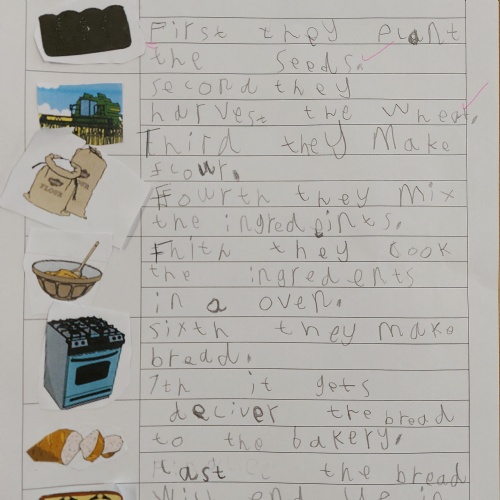 First they plant
the seeds.
second they
harvest the wheat.
Third they Make
flour.
Fourth they mix
the ingredeints.
Fhith they cook
the ingredents
in a oven.
sixth they make
bread.
7th it gets
deliver the bread
to the bakery.
the bread
FLOUR